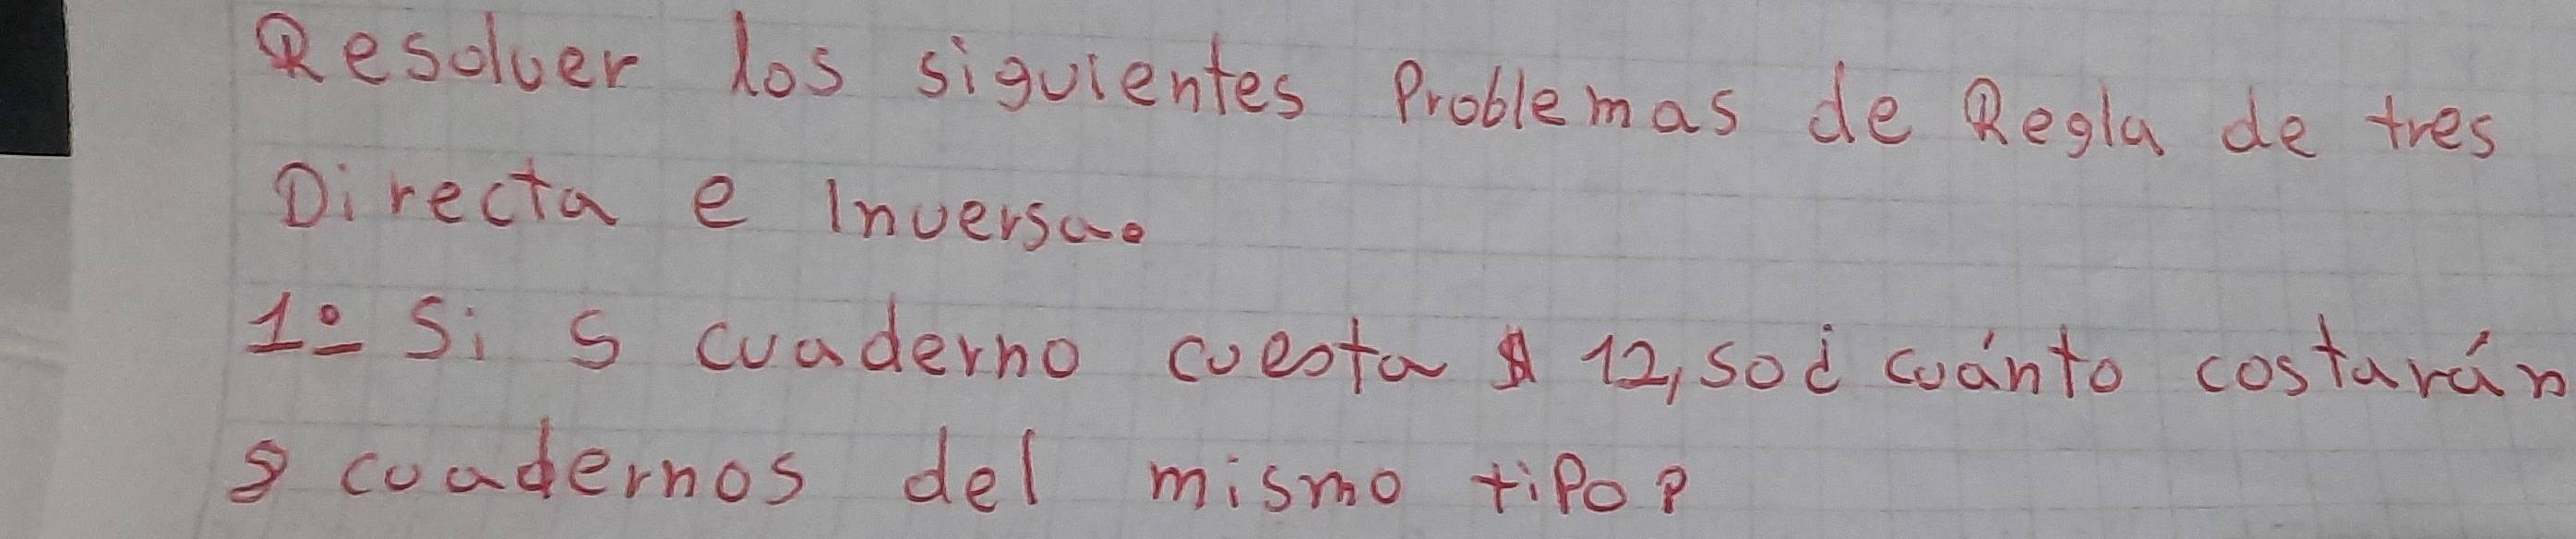 Resolver los siguientes Problemas de Regla de tres
Directa e Inversa.
1º Si 5 cuaderno cuesta $ 12,50 ¿ cuánto costarán
8 cuadernos del mismo tipo?